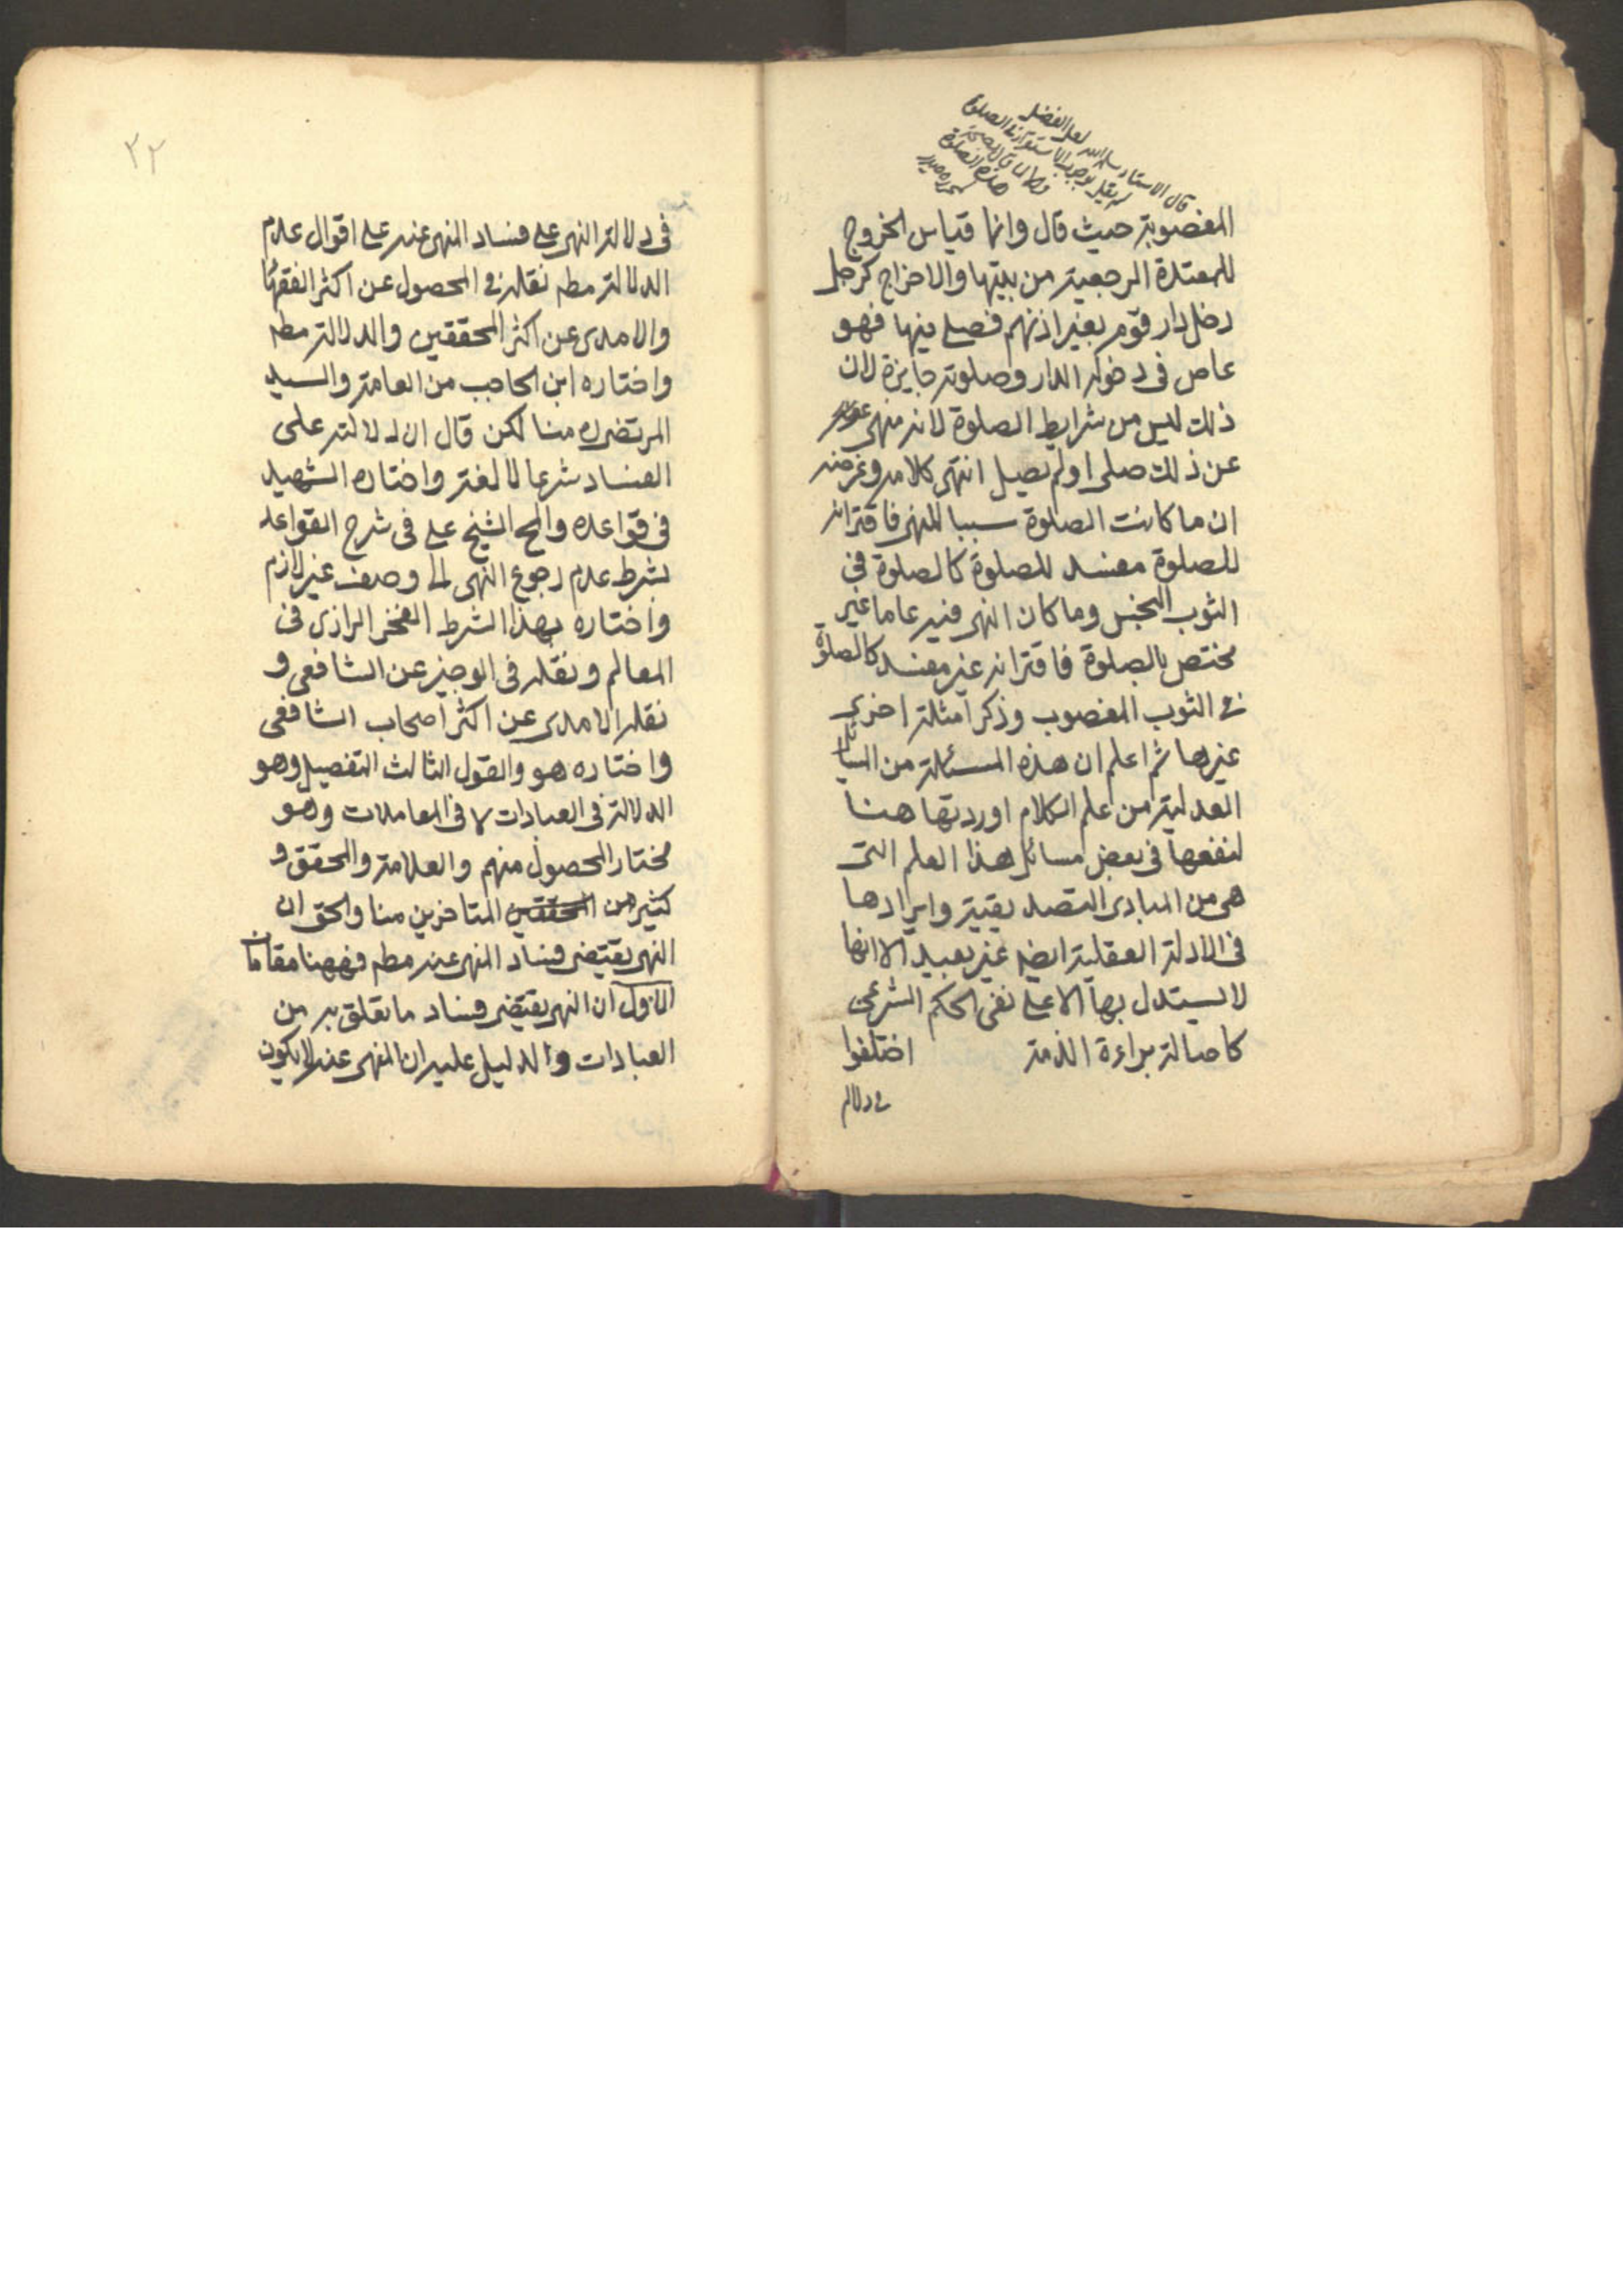 قال الاستاد سلمه الله لعل الفضل
المغصوبة حيث قال وانما قياس الخروج
للمعتدة الرجعية من بيتها والاخراج كرجل
دخل دار قوم بغير اذنهم فصلى فيها فهو
عاص في دخوله الدار وصلوته جايزة لان
ذلك ليس من شرايط الصلوة لانه منهى
عن ذلك صلى او لم يصل انتهى كلامه وغرضه
ان ما كانت الصلوة سببا للنهى فاقترانه
للصلوة مفسد للصلوة كالصلوة في
الثوب النجس وما كان النهى فيه عاما غير
مختص بالصلوة فاقترانه غير مفسد كالصلوة
في الثوب المغصوب وذكر امثلة اخرى
غيرها ثم اعلم ان هذه المسئلة من المسائل
العدلية من علم الكلام اوردتها هنا
لنفعها في بعض مسائل هذا العلم التى
هى من المبادى التصديقية وايرادها
في الادلة العقلية ايضه غير بعيد الا انها
لا يستدل بها الا على نفى الحكم الشرعى
كاصالة براءة الذمة اختلفوا
في دلالة
٢٢
في دلالة النهى على فساد المنهى عنه على اقوال عدم
الدلالة مطه نقله في المحصول عن اكثر الفقهاء
والامدى عن اكثر المحققين والدلالة مطه
واختاره ابن الحاجب من العامة والسيد
المرتضى ره منا لكن قال ان دلالته على
الفساد شرعا لا لغة واختاره الشهيد
في قواعده والمح الشيخ على في شرح القواعد
بشرط عدم رجوع النهى الى وصف غير لازم
واختاره بهذا الشرط الفخر الرازى في
المعالم ونقله في الوجيز عن الشافعى و
نقله الامدى عن اكثر اصحاب الشافعى
واختاره هو والقول الثالث التفصيل وهو
الدلالة في العبادات لا في المعاملات وهو
مختار المحصول منهم والعلامة والمحقق و
كثير من المحققين المتاخرين منا والحق ان
النهى يقتضى فساد المنهى عنه مطه فههنا مقامان
الاول ان النهى يقتضى فساد ما تعلق به من
العبادات والدليل عليه ان المنهى عنه لا يكون